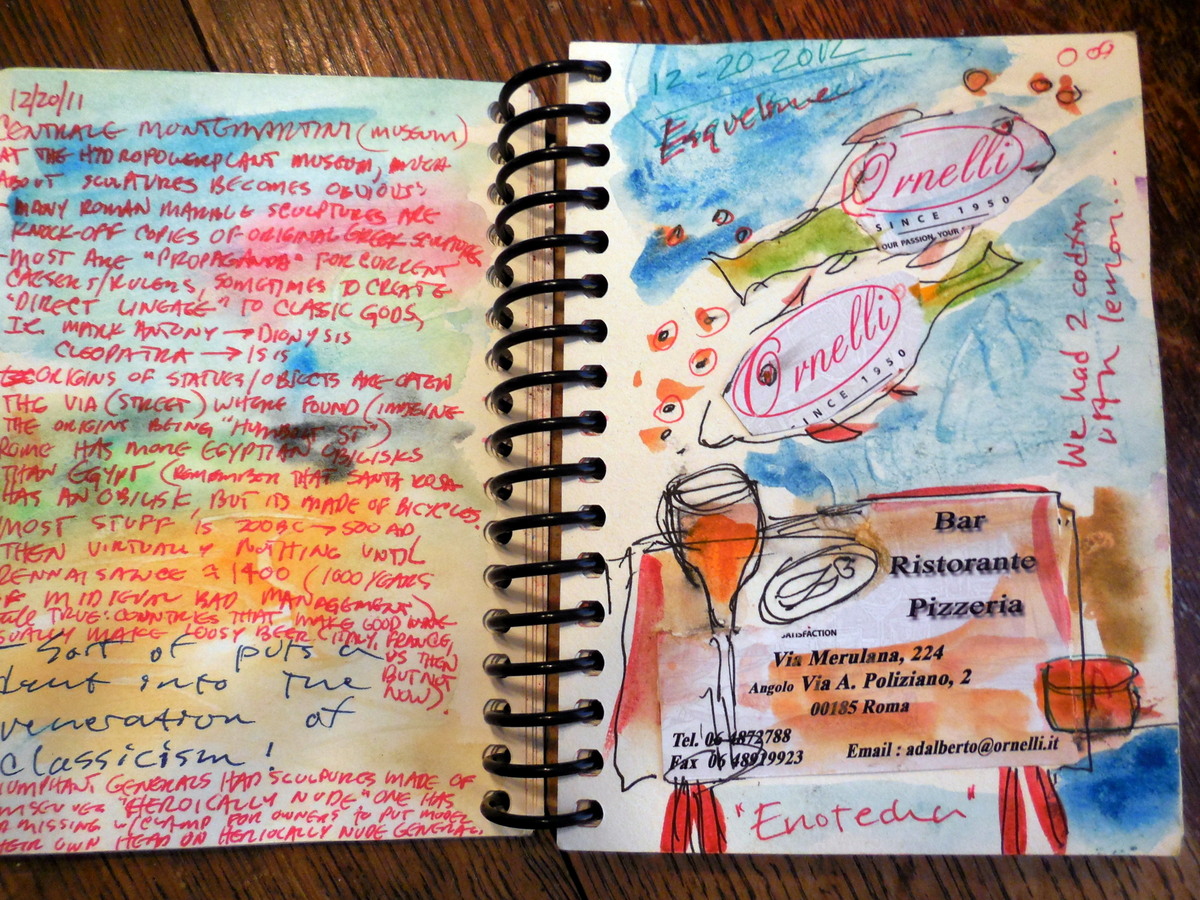 12/20/11
CENTRALE MONTEMARTINI (MUSEUM)
AT THE HYDROPOWERPLANT MUSEUM, MUCH
ABOUT SCULPTURES BECOMES OBVIOUS:
-MANY ROMAN MARBLE SCULPTURES ARE
KNOCK-OFF COPIES OF ORIGINAL GREEK SCULPTURES
-MOST ARE "PROPAGANDA" FOR CURRENT
CAESERS/RULERS, SOMETIMES TO CREATE
"DIRECT LINEAGE" TO CLASSIC GODS,
IE MARK ANTONY → DIONYSIS
CLEOPATRA → ISIS
ORIGINS OF STATUES/OBJECTS ARE OFTEN
THE VIA (STREET) WHERE FOUND (IMAGINE
THE ORIGINS BEING "HUMBOLT ST")
ROME HAS MORE EGYPTIAN OBILISKS
THAN EGYPT (REMEMBER THAT SANTA ROSA
HAS AN OBILISK, BUT ITS MADE OF BICYCLES,
MOST STUFF IS 200 BC → 500 AD
THEN VIRTUALLY NOTHING UNTIL
RENNAISANCE ≈ 1400 (1000 YEARS
OF MIDIEVAL BAD MANAGEMENT)
TRUE: COUNTRIES THAT MAKE GOOD WINE
USUALLY MAKE LOUSY BEER (ITALY, FRANCE,
US THEN
BUT NOT
NOW).
Sort of puts a
dent into the
veneration of
Classicism!
TRIUMPHANT GENERALS HAD SCULPURES MADE OF
THEMSELVES "HEROICALLY NUDE" ONE HAS
A MISSING W/CLAMP FOR OWNERS TO PUT MODEL
THEIR OWN HEAD ON HERIOCALLY NUDE GENERAL.
12-20-2012
Esquelinne
Ornelli
SINCE 1950
OUR PASSION, YOUR
Ornelli
SINCE 1950
We had 2 codtm
with lemon...
Bar
Ristorante
Pizzeria
SATISFACTION
Via Merulana, 224
Angolo Via A. Poliziano, 2
00185 Roma
Tel. 06 4872788
Fax 06 48919923
Email : adalberto@ornelli.it
"Enotecha"